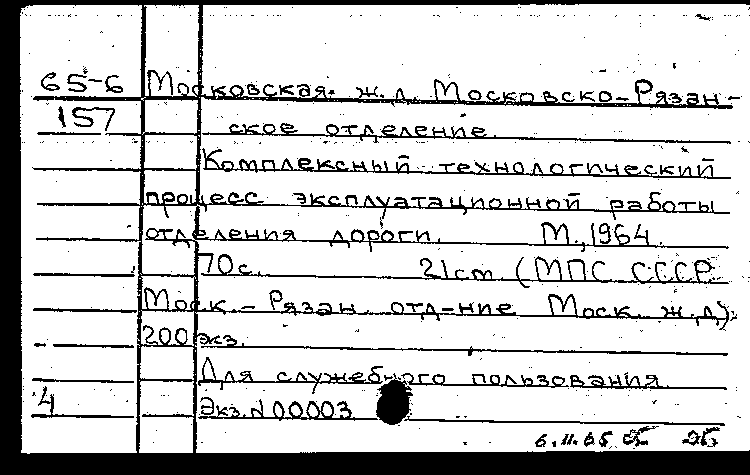 65-6 Московская ж.д. Московско-Рязан-
157 ское отделение.
Комплексный технологический
процесс эксплуатационной работы
отделения дороги. М., 1964.
70с. 21cm (МПС СССР.
Моск.-Рязан. отд-ние Моск. ж.д.).
200 экз.
Для служебного пользования
4 Экз.N00003
6.11.65